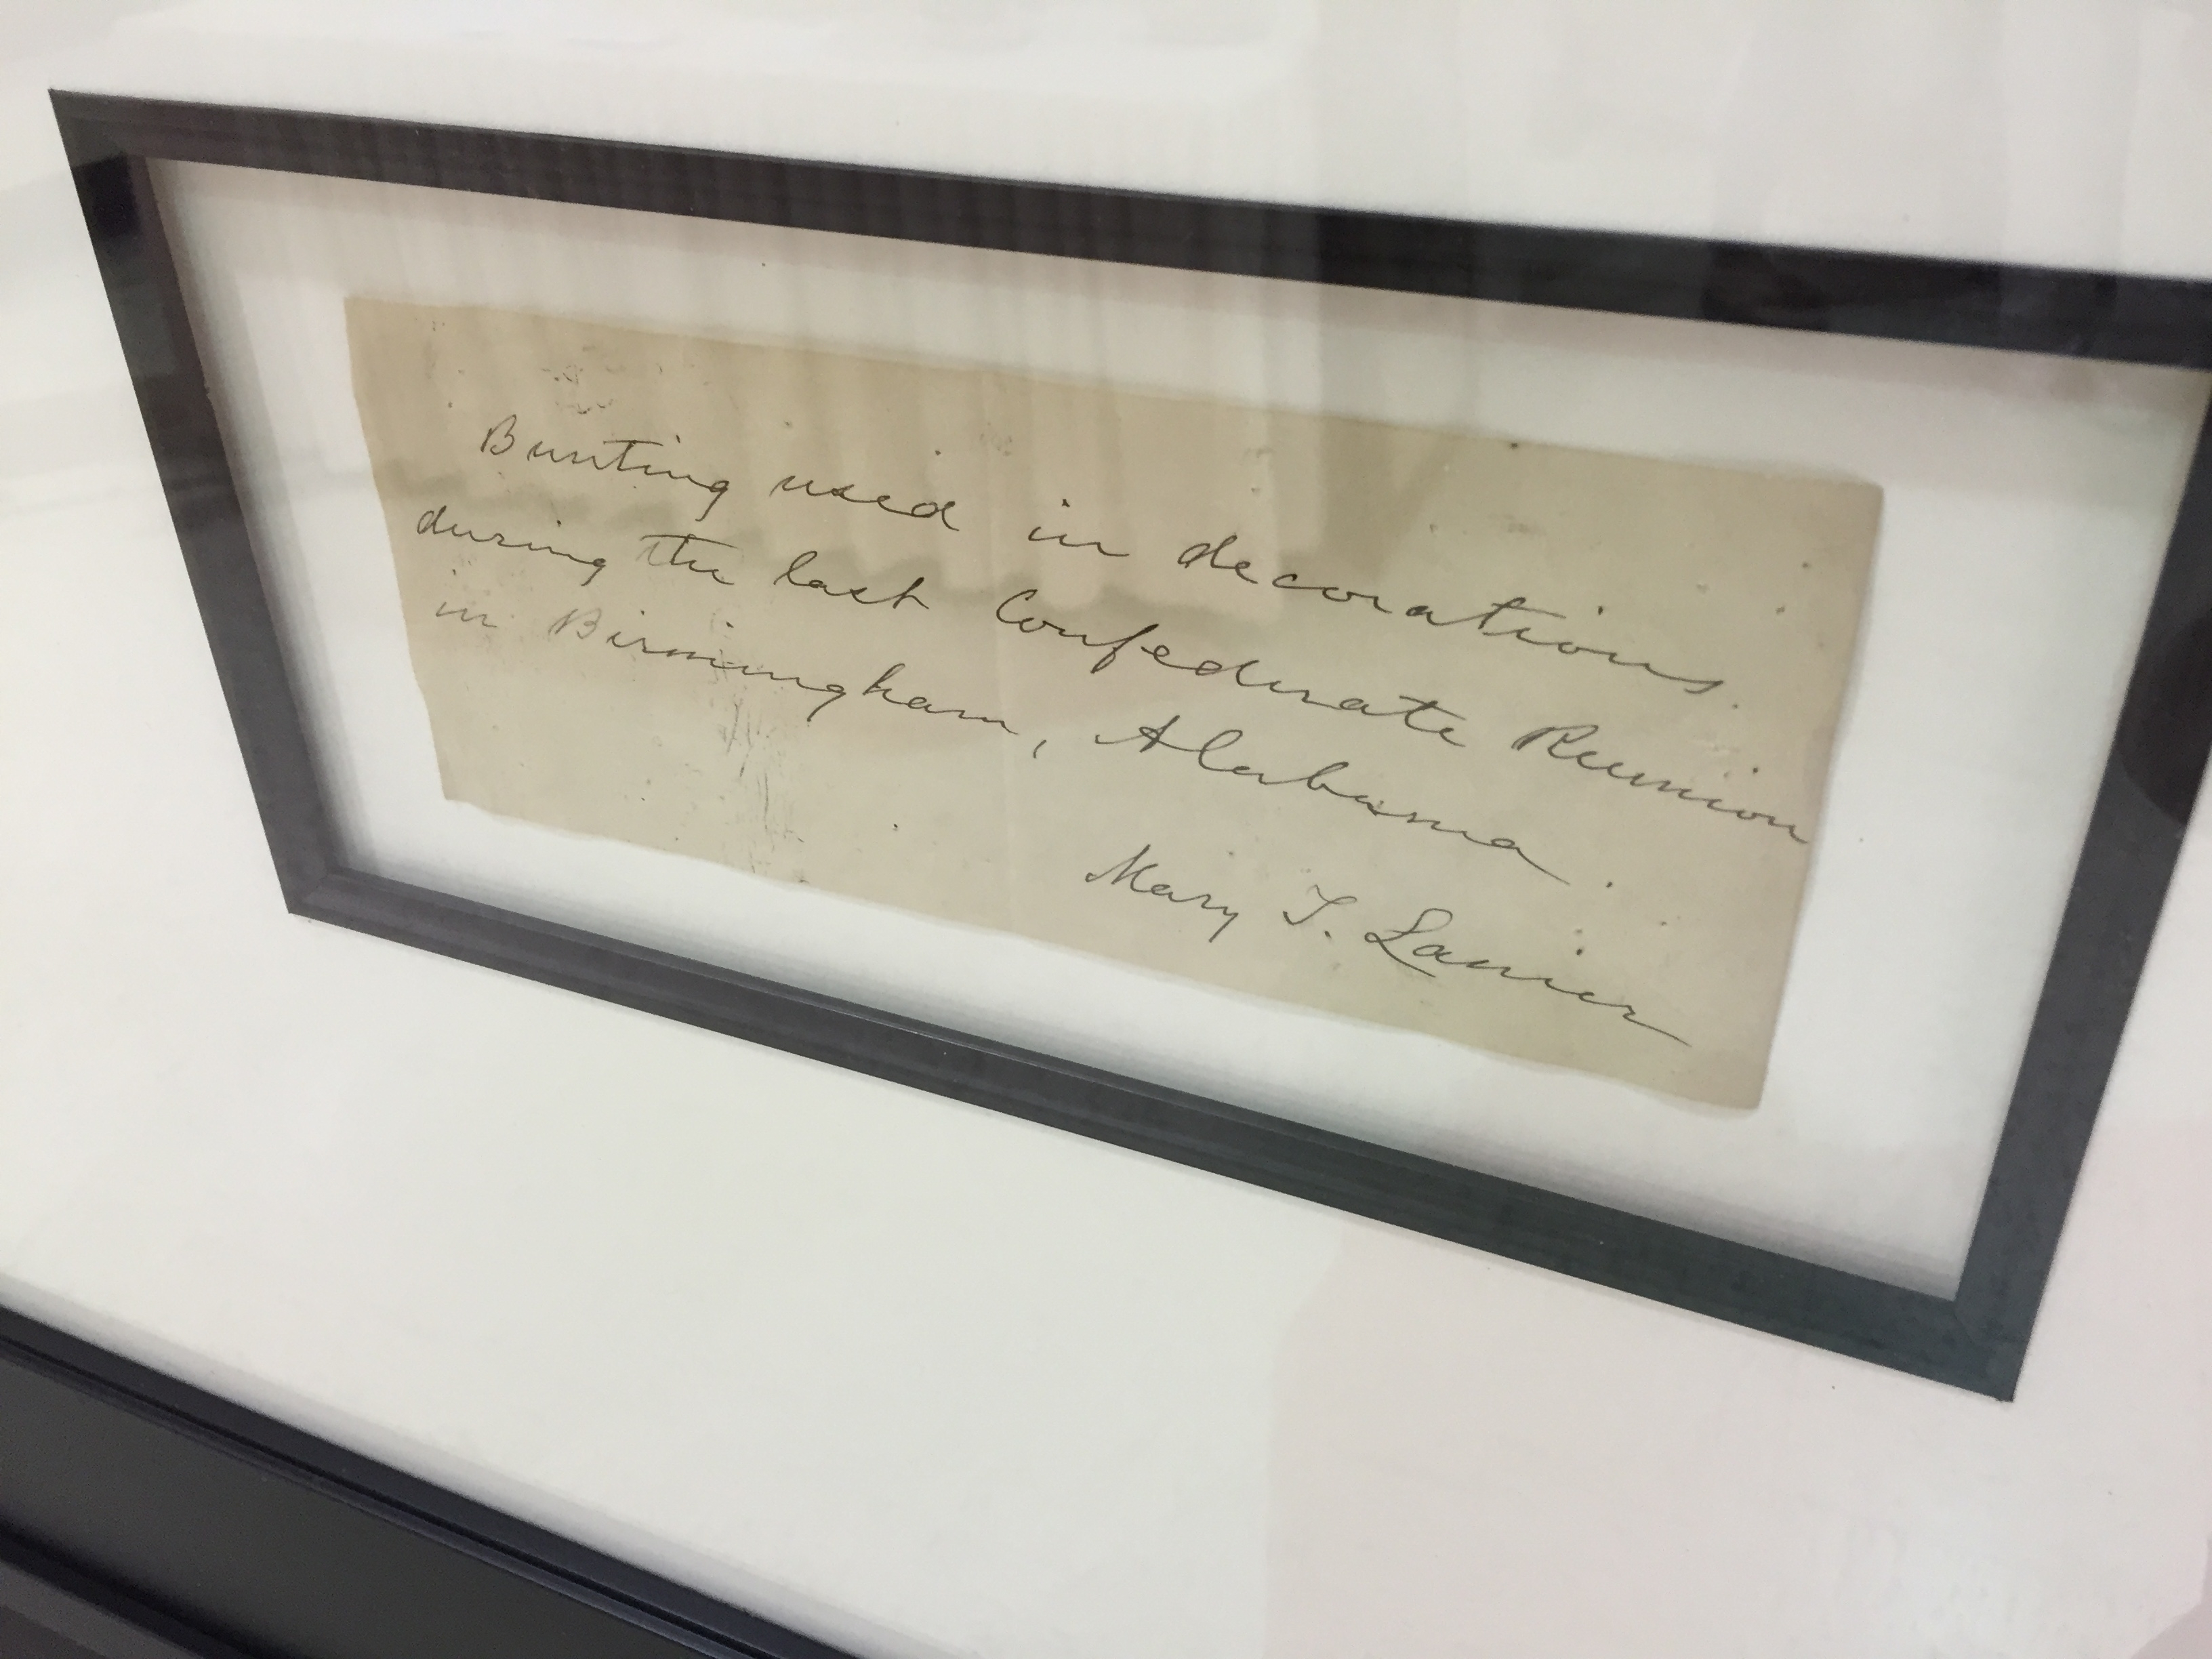 Bunting used in decorations
during the last Confederate Reunion
in Birmingham, Alabama
Mary T. Lanier